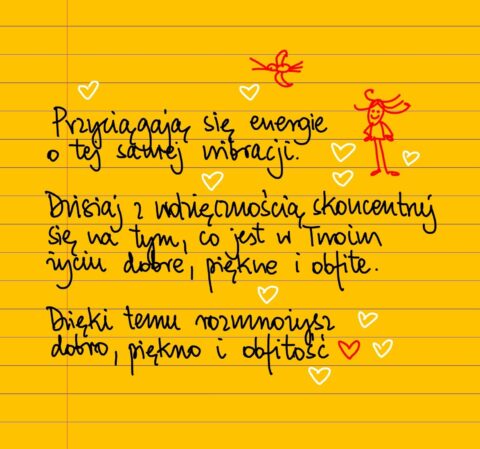 Przyciągają się energie
o tej samej wibracji.
Dzisiaj z wdzięcznością skoncentruj
się na tym, co jest w Twoim
życiu dobre, piękne i obfite.
Dzięki temu rozmnożysz
dobro, piękno i obfitość